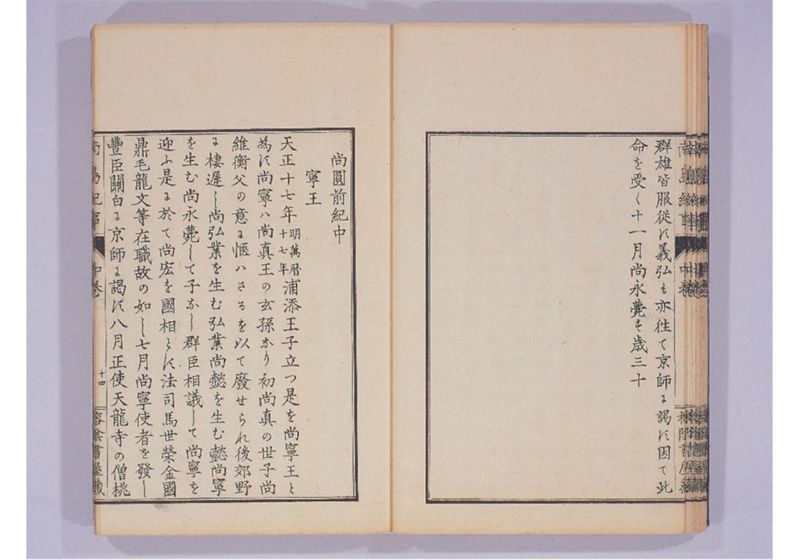 群雄皆服從ス義弘も亦往て京師に謁ス因て此
命を受く十一月尚永薨す歳三十
尚圓前紀中
寧王
天正十七年明萬曆十七年浦添王子立つ是を尚寧王と
為ス尚寧ハ尚真王の玄孫なり初尚真の世子尚
維衡父の意に愜ハさるを以て廢せられ後郊野
に棲遲し尚弘業を生む弘業尚懿を生む懿尚寧
を生む尚永薨して子なし群臣相議して尚寧を
迎ふ是に於て尚宏を國相とス法司馬世榮金國
鼎毛龍文等在職故の如し七月尚寧使者を發し
豐臣關白に京師に謁ス八月正使天龍寺の僧桃
中卷
十四